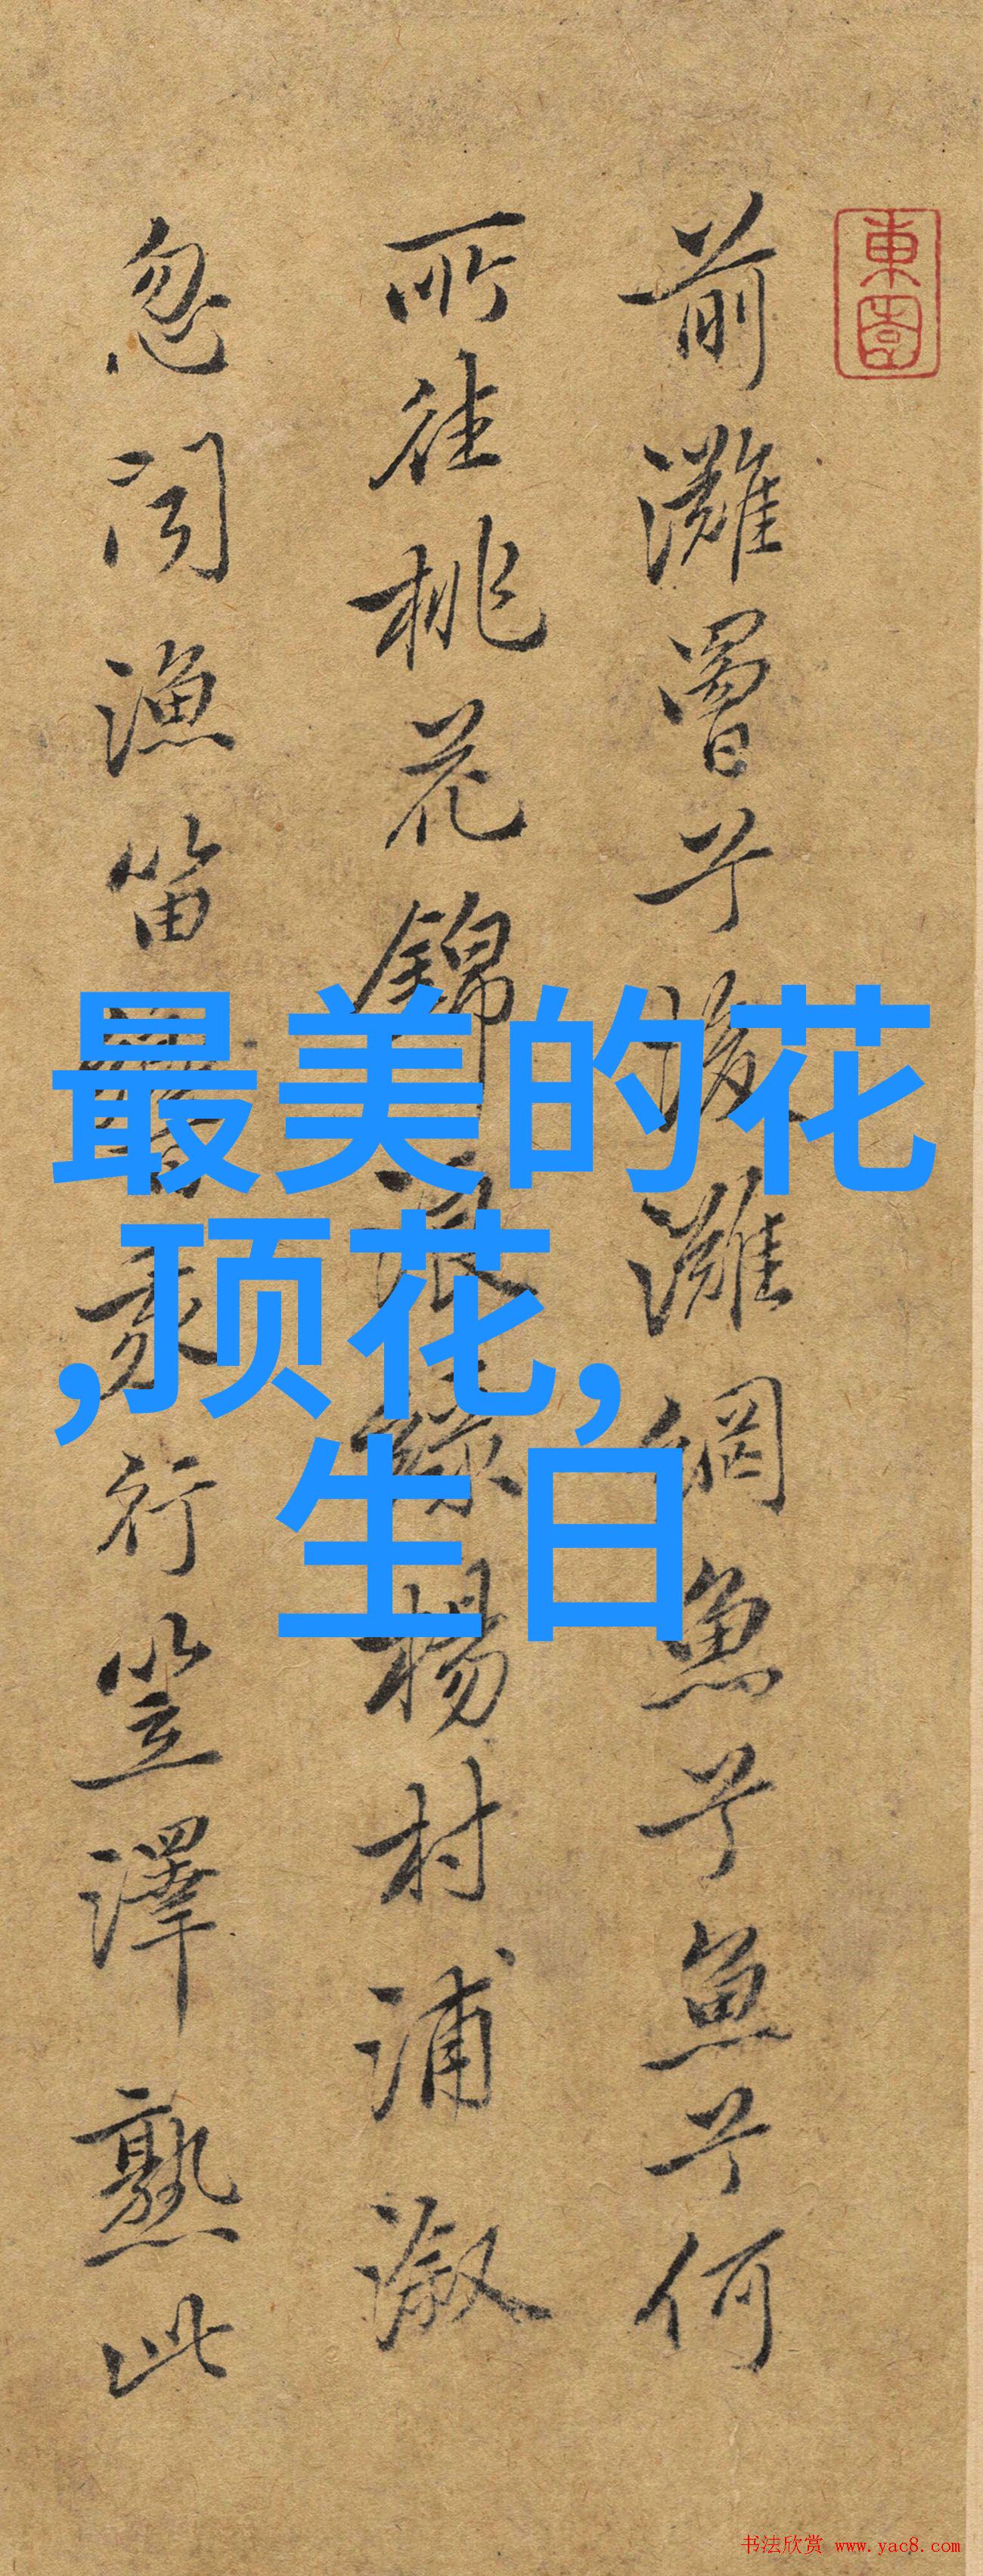 東
前灘罾兮後灘網魚兮魚兮何
所往桃花錦浪綠楊村浦溆
忽闻漁笛行笠澤熟此
最美的花
,顶花,
生白
书法欣赏 www.yac8.com